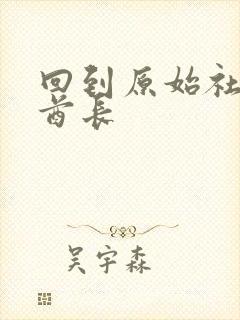 回到原始社
酋长
吴宇森